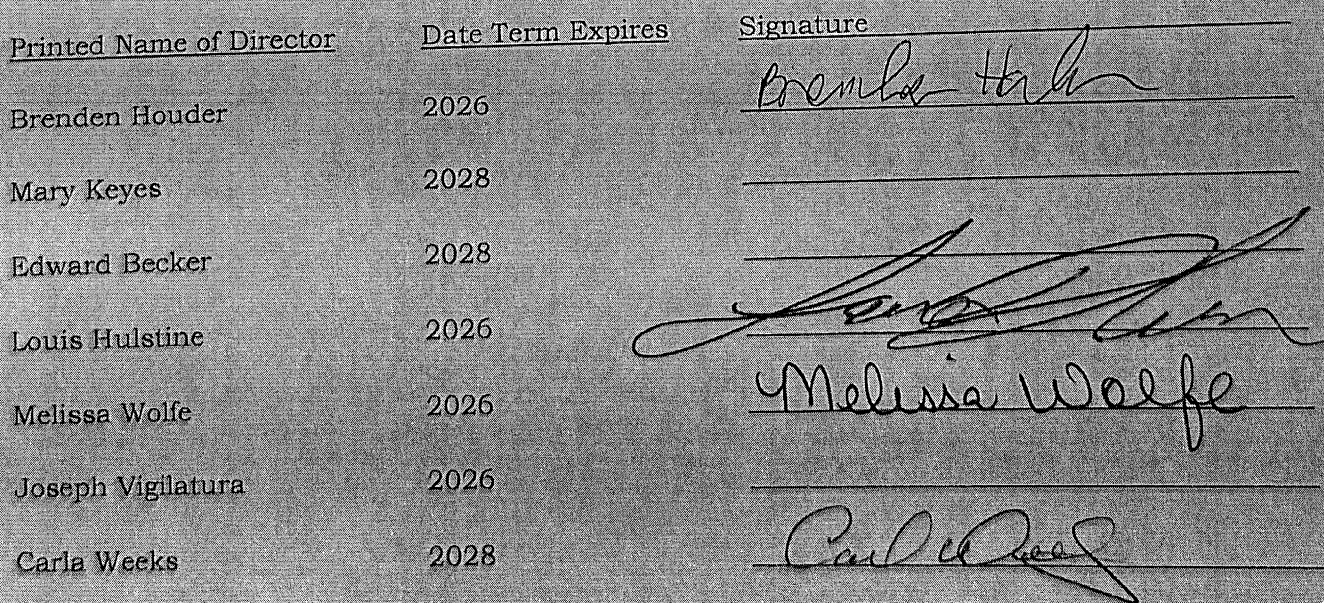 Printed Name of Director Date Term Expires Signature
Brenden Houder 2026 Brenden
Mary Keyes 2028
Edward Becker 2028
Louis Hulstine 2026
Melissa Wolfe 2026 Melissa Wolfe
Joseph Vigilatura 2026
Carla Weeks 2028